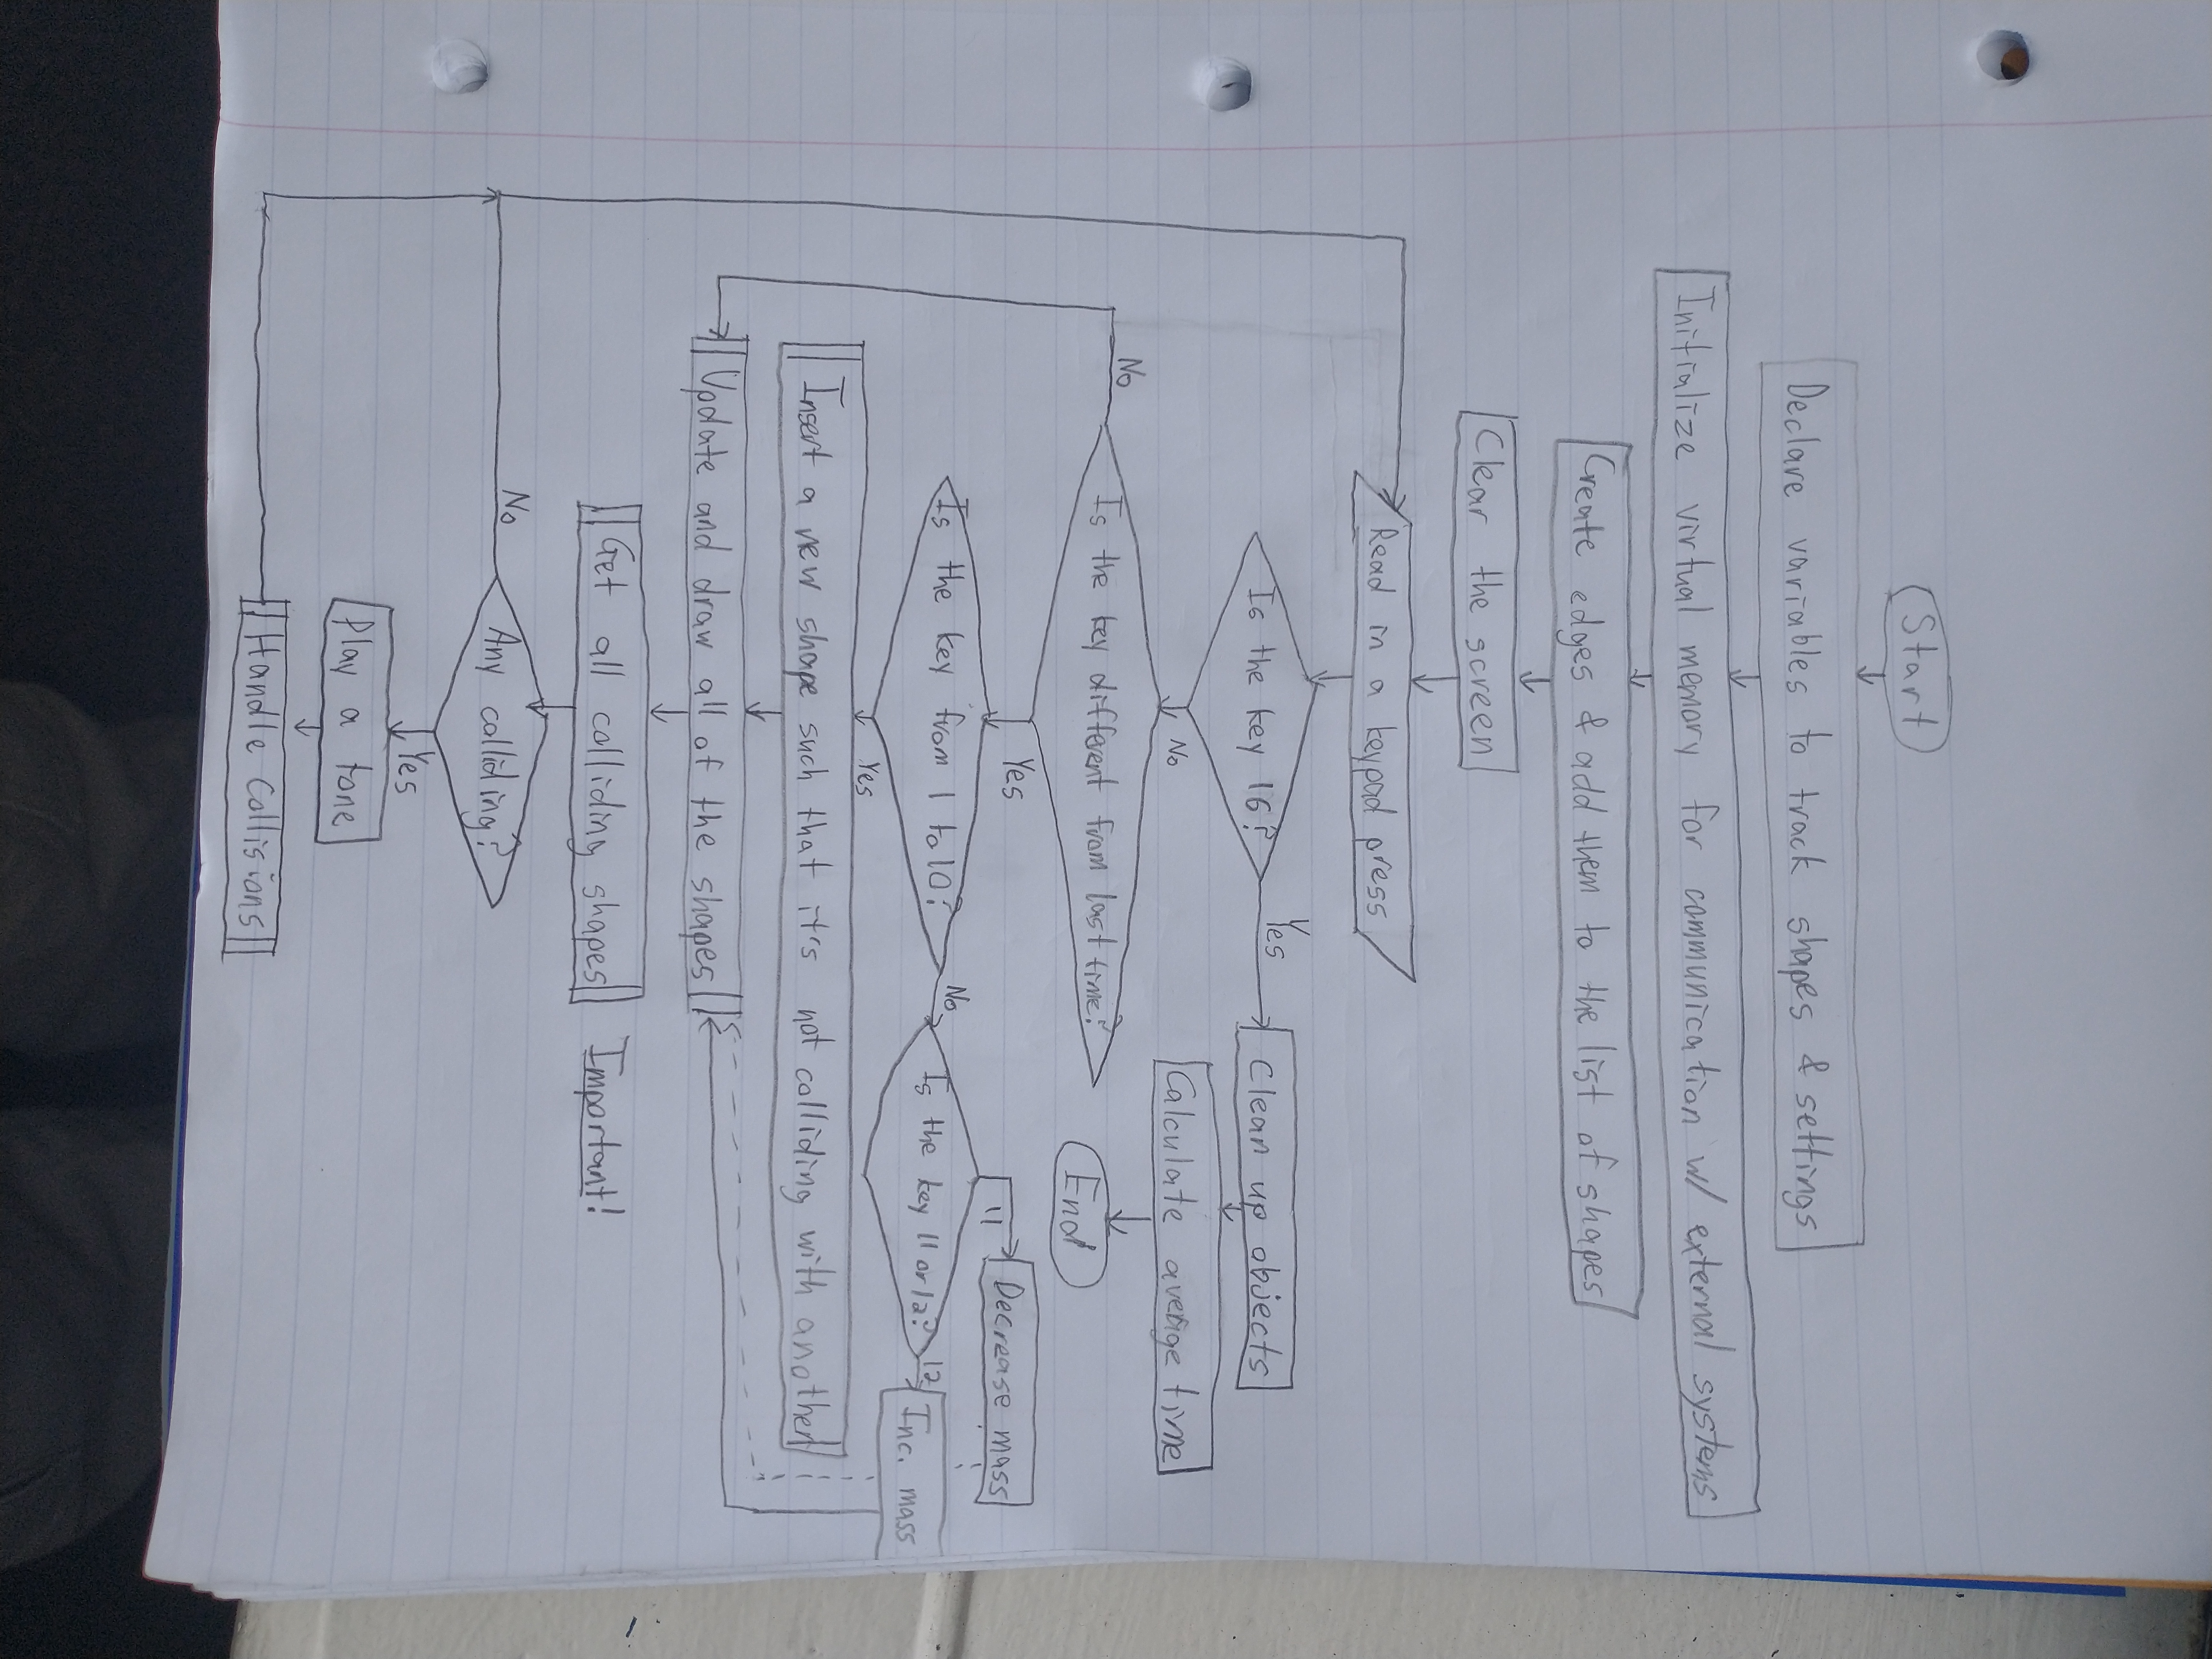 Start
Declare variables to track shapes & settings
Initialize virtual memory for communication w/ external systems
Create edges & add them to the list of shapes
Clear the screen
Read in a keypad press
Is the key 16?
Yes
Clean up objects
No
Calculate average time
End
Is the key different from last time?
No
Yes
Is the key from 1 to 10?
No
Is the key 11 or 12?
11
Decrease mass
12
Inc. mass
Yes
Insert a new shape such that it's not colliding with another
Update and draw all of the shapes
Get all colliding shapes
Important!
Any colliding?
No
Yes
Play a tone
Handle Collisions